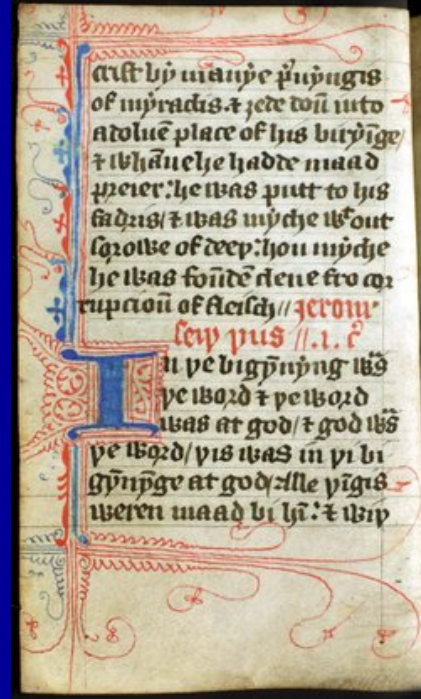 crist bi manye p̱uyngis
of myraclis. ⁊ ȝede doū into
a doluē place of his biryīge/
⁊ whāne he hadde maad
preier: he was putt to his
fadris/ ⁊ was myche wͭout
sorowe of deeþ: hou myche
he was foūdē clene fro cor
rupcioū of fleisch// Jerom
seiþ þus //.i. c̄
In þe bigȳnyng was
þe word ⁊ þe word
was at god/ ⁊ god was
þe word/ þis was in þi bi
gȳnynge at god/ Alle þīgis
weren maad bi hī: ⁊ wiþ